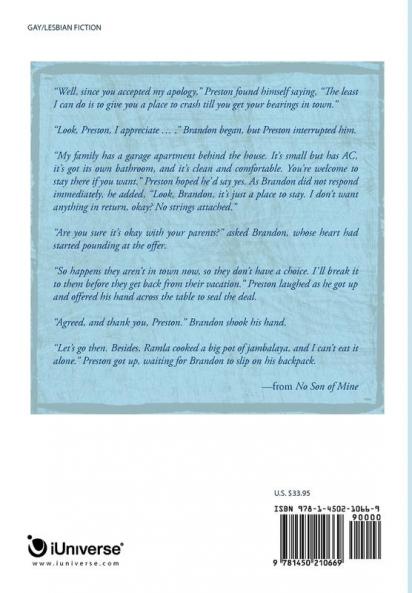 GAY/LESBIAN FICTION
“Well, since you accepted my apology,” Preston found himself saying, “The least
I can do is to give you a place to crash till you get your bearings in town.”
“Look, Preston, I appreciate … ,” Brandon began, but Preston interrupted him.
“My family has a garage apartment behind the house. It’s small but has AC,
it’s got its own bathroom, and it’s clean and comfortable. You’re welcome to
stay there if you want,” Preston hoped he’d say yes. As Brandon did not respond
immediately, he added, “Look, Brandon, it’s just a place to stay. I don’t want
anything in return, okay? No strings attached.”
“Are you sure it’s okay with your parents?” asked Brandon, whose heart had
started pounding at the offer.
“So happens they aren’t in town now, so they don’t have a choice. I’ll break it
to them before they get back from their vacation.” Preston laughed as he got up
and offered his hand across the table to seal the deal.
“Agreed, and thank you, Preston.” Brandon shook his hand.
“Let’s go then. Besides, Ramla cooked a big pot of jambalaya, and I can’t eat it
alone.” Preston got up, waiting for Brandon to slip on his backpack.
—from No Son of Mine
U.S. $33.95
ISBN 978-1-4502-1066-9
90000
9 781450 210669
iUniverse®
www.iuniverse.com